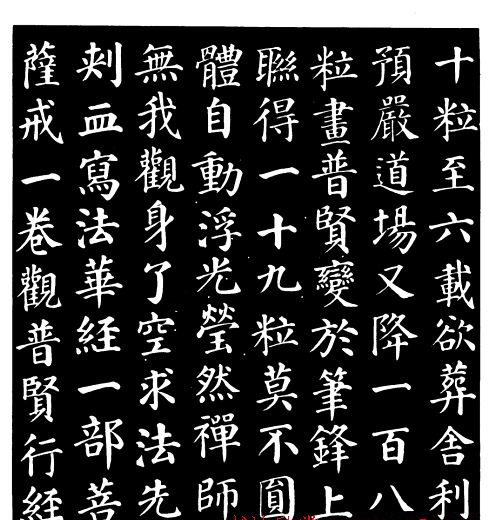 十粒至六載欲葬舍利
預嚴道場又降一百八
粒畫普賢變於筆鋒上
聯得一十九粒莫不圓
體自動浮光瑩然禪師
無我觀身了空求法先
刾血寫法華経一部菩
薩戒一卷觀普賢行経